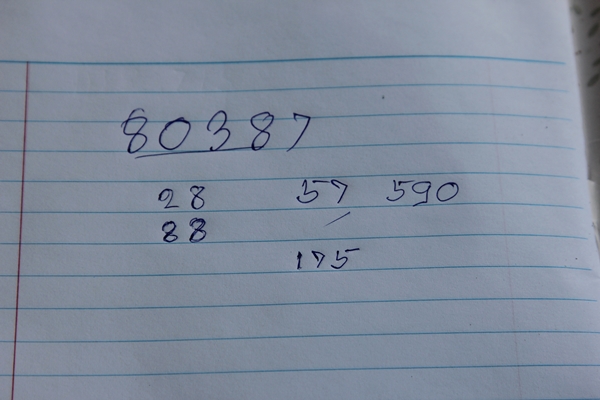 80387
28 57 590
88 /
175